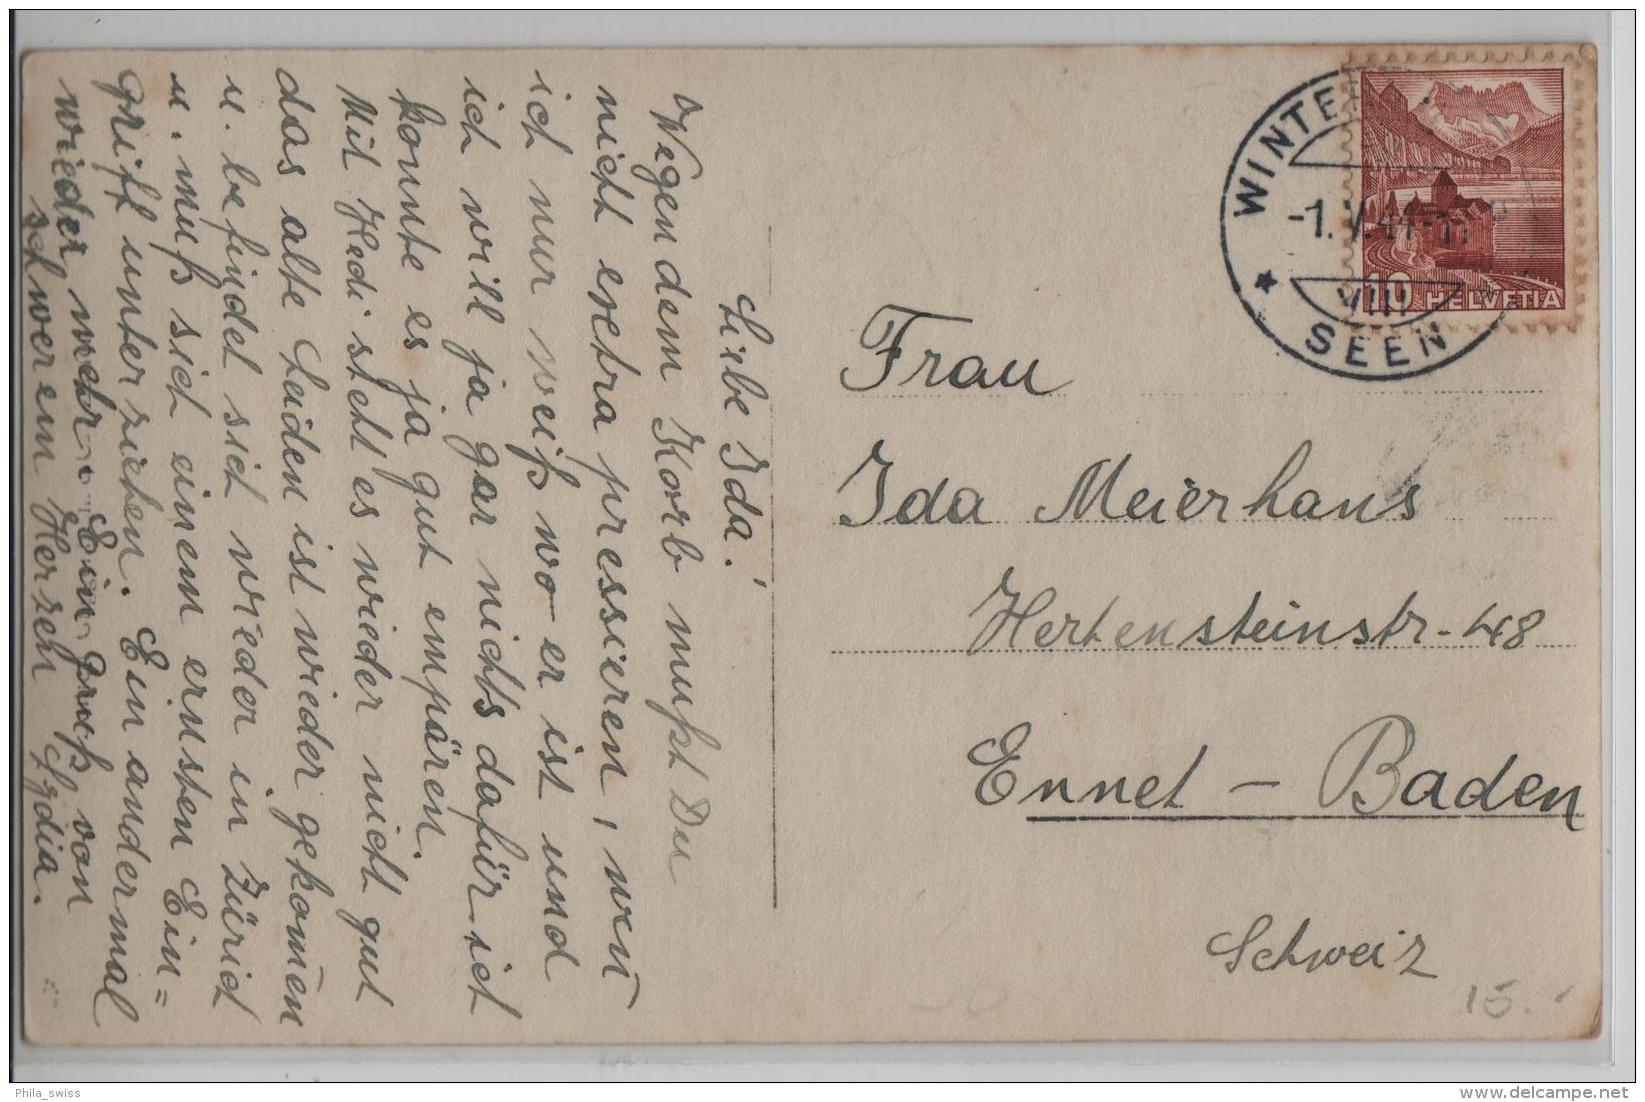 Liebe Ida!
Wegen dem Korb mußt Du
nicht extra pressieren, wen̄
ich nur weiß wo er ist und
ich will ja gar nichts dafür ich
konnte es ja gut empären.
Mit Hedi steht es wieder nicht gut
das alte Leiden ist wieder gekom̄en
u. befindet sich wieder in Zürich
u. muß sich einem ernsten Ein=
griff unterziehen. Ein andermal
wieder mehr. Ein Gruß von
schwerem Herzen Lydia.
WINTE
-1.V.41-11
VIII
SEEN
10 HELVETIA
Frau
Ida Meierhans
Hertensteinstr. 48
Ennet - Baden
Schweiz
15.-
Phila_swiss
delcampe.net